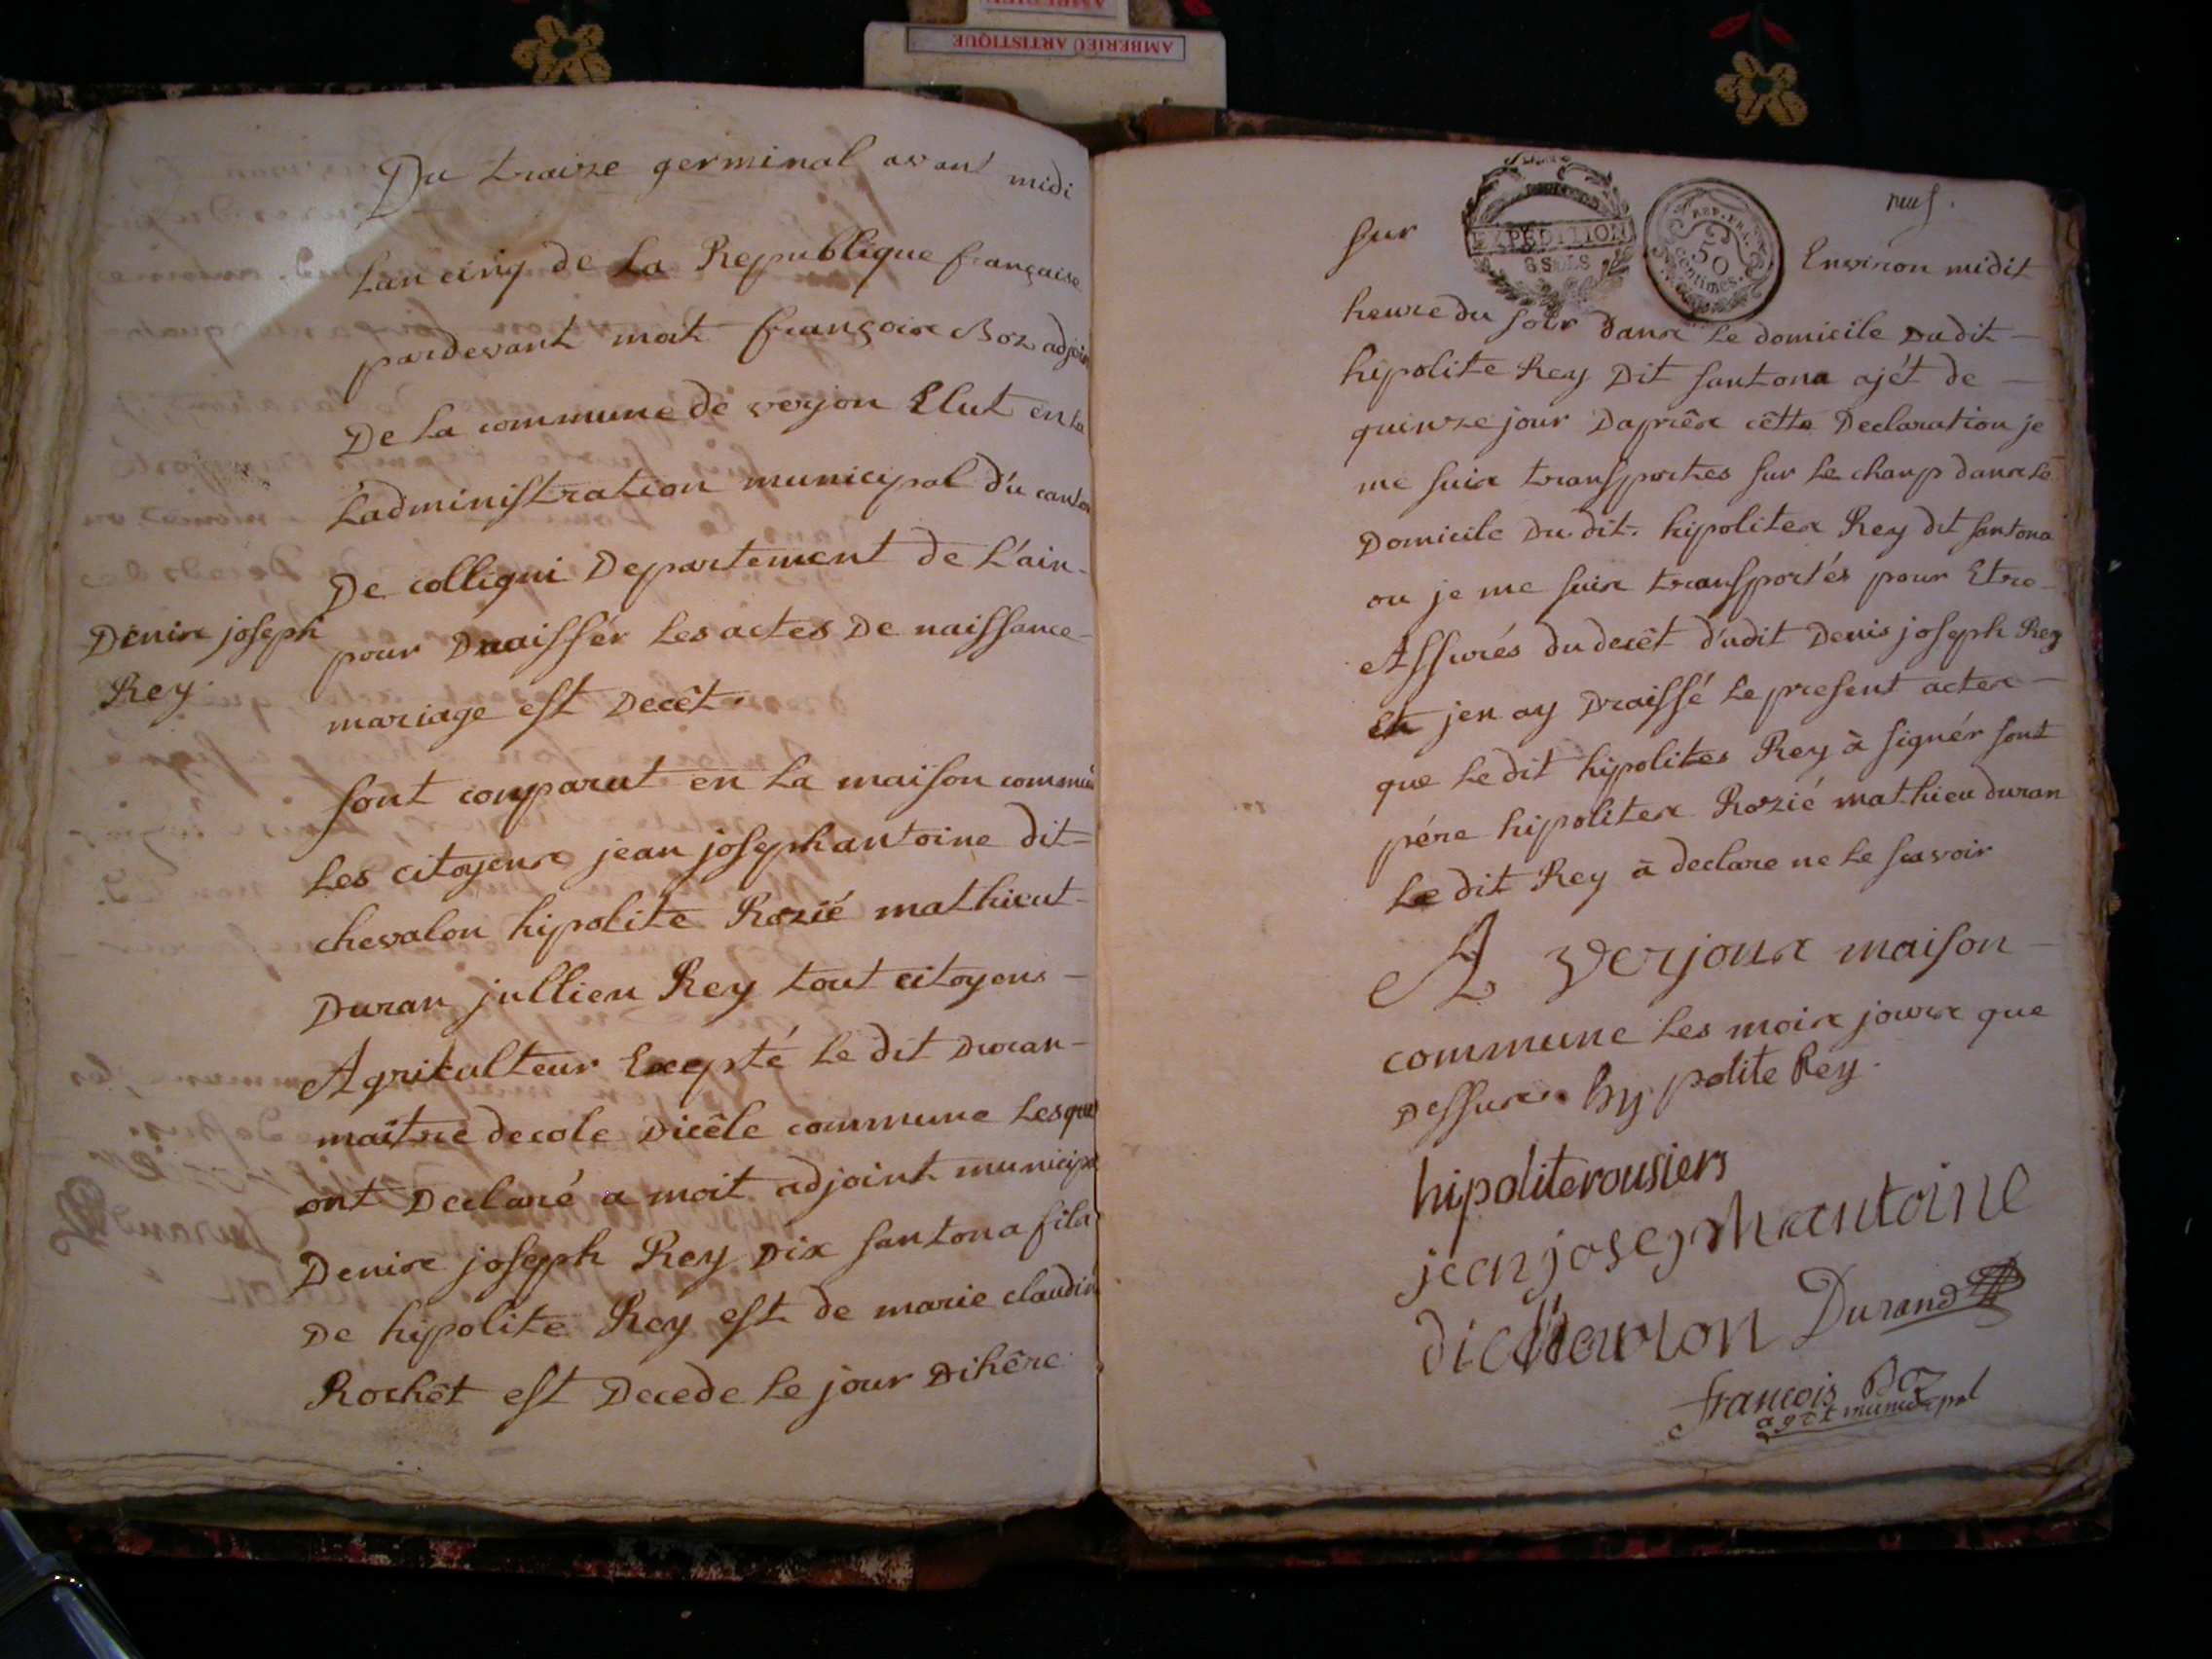 AMBERIEU ARTISTIQUE
Du traize germinal avant midi
Lan cinq de La Republique française
pardevant moit françois Boz adjoin
De La commune de verjon Elut en La
Ladministration municipal d'u canton
De colligni Departement de L'ain
Denise joseph
Rey
pour Draissér Les actes De naissance
mariage est Decêt.
sont comparut en La maison commun
Les citoyens jean joseph antoine dit
chevalon hipolite Rozié mathieut
Duran jullien Rey tout citoyens
Agrikulteur Excepté Le dit Duran
maitre decole Dicêle commune Lesque
ont Declaré a moit adjoint municipa
Denise joseph Rey Dix santona fils
De hipolite Rey est de marie claudin
Rochêt est Decede Le jour Dihêre
neuf.
EXPEDITION
8 SOLS
REP. FRA.
50
centimes.
sur Environ midit
heure du soir dans Le domicile Dudit
hipolite Rey Dit santona ajét de
quinze jour Daprês cêtte Declaration je
me suis transportes sur Le chanp dans Le
Domicile Du dit. hipolites Rey dit santona
ou je me suis transportés pour Etre
Assurés du decêt d'udit Denis joseph Rey
Et jen ay Draissé Le present actes
que Le dit hipolites Rey à signér sont
pére hipolites Rozié mathieu duran
Le dit Rey à declare ne Le scavoir
A verjons maison
commune Les mois jours que
Dessures hypolite Rey.
hipoliterousiers
jean joseph antoine
dichavron Durand
francois Boz
agët municipal